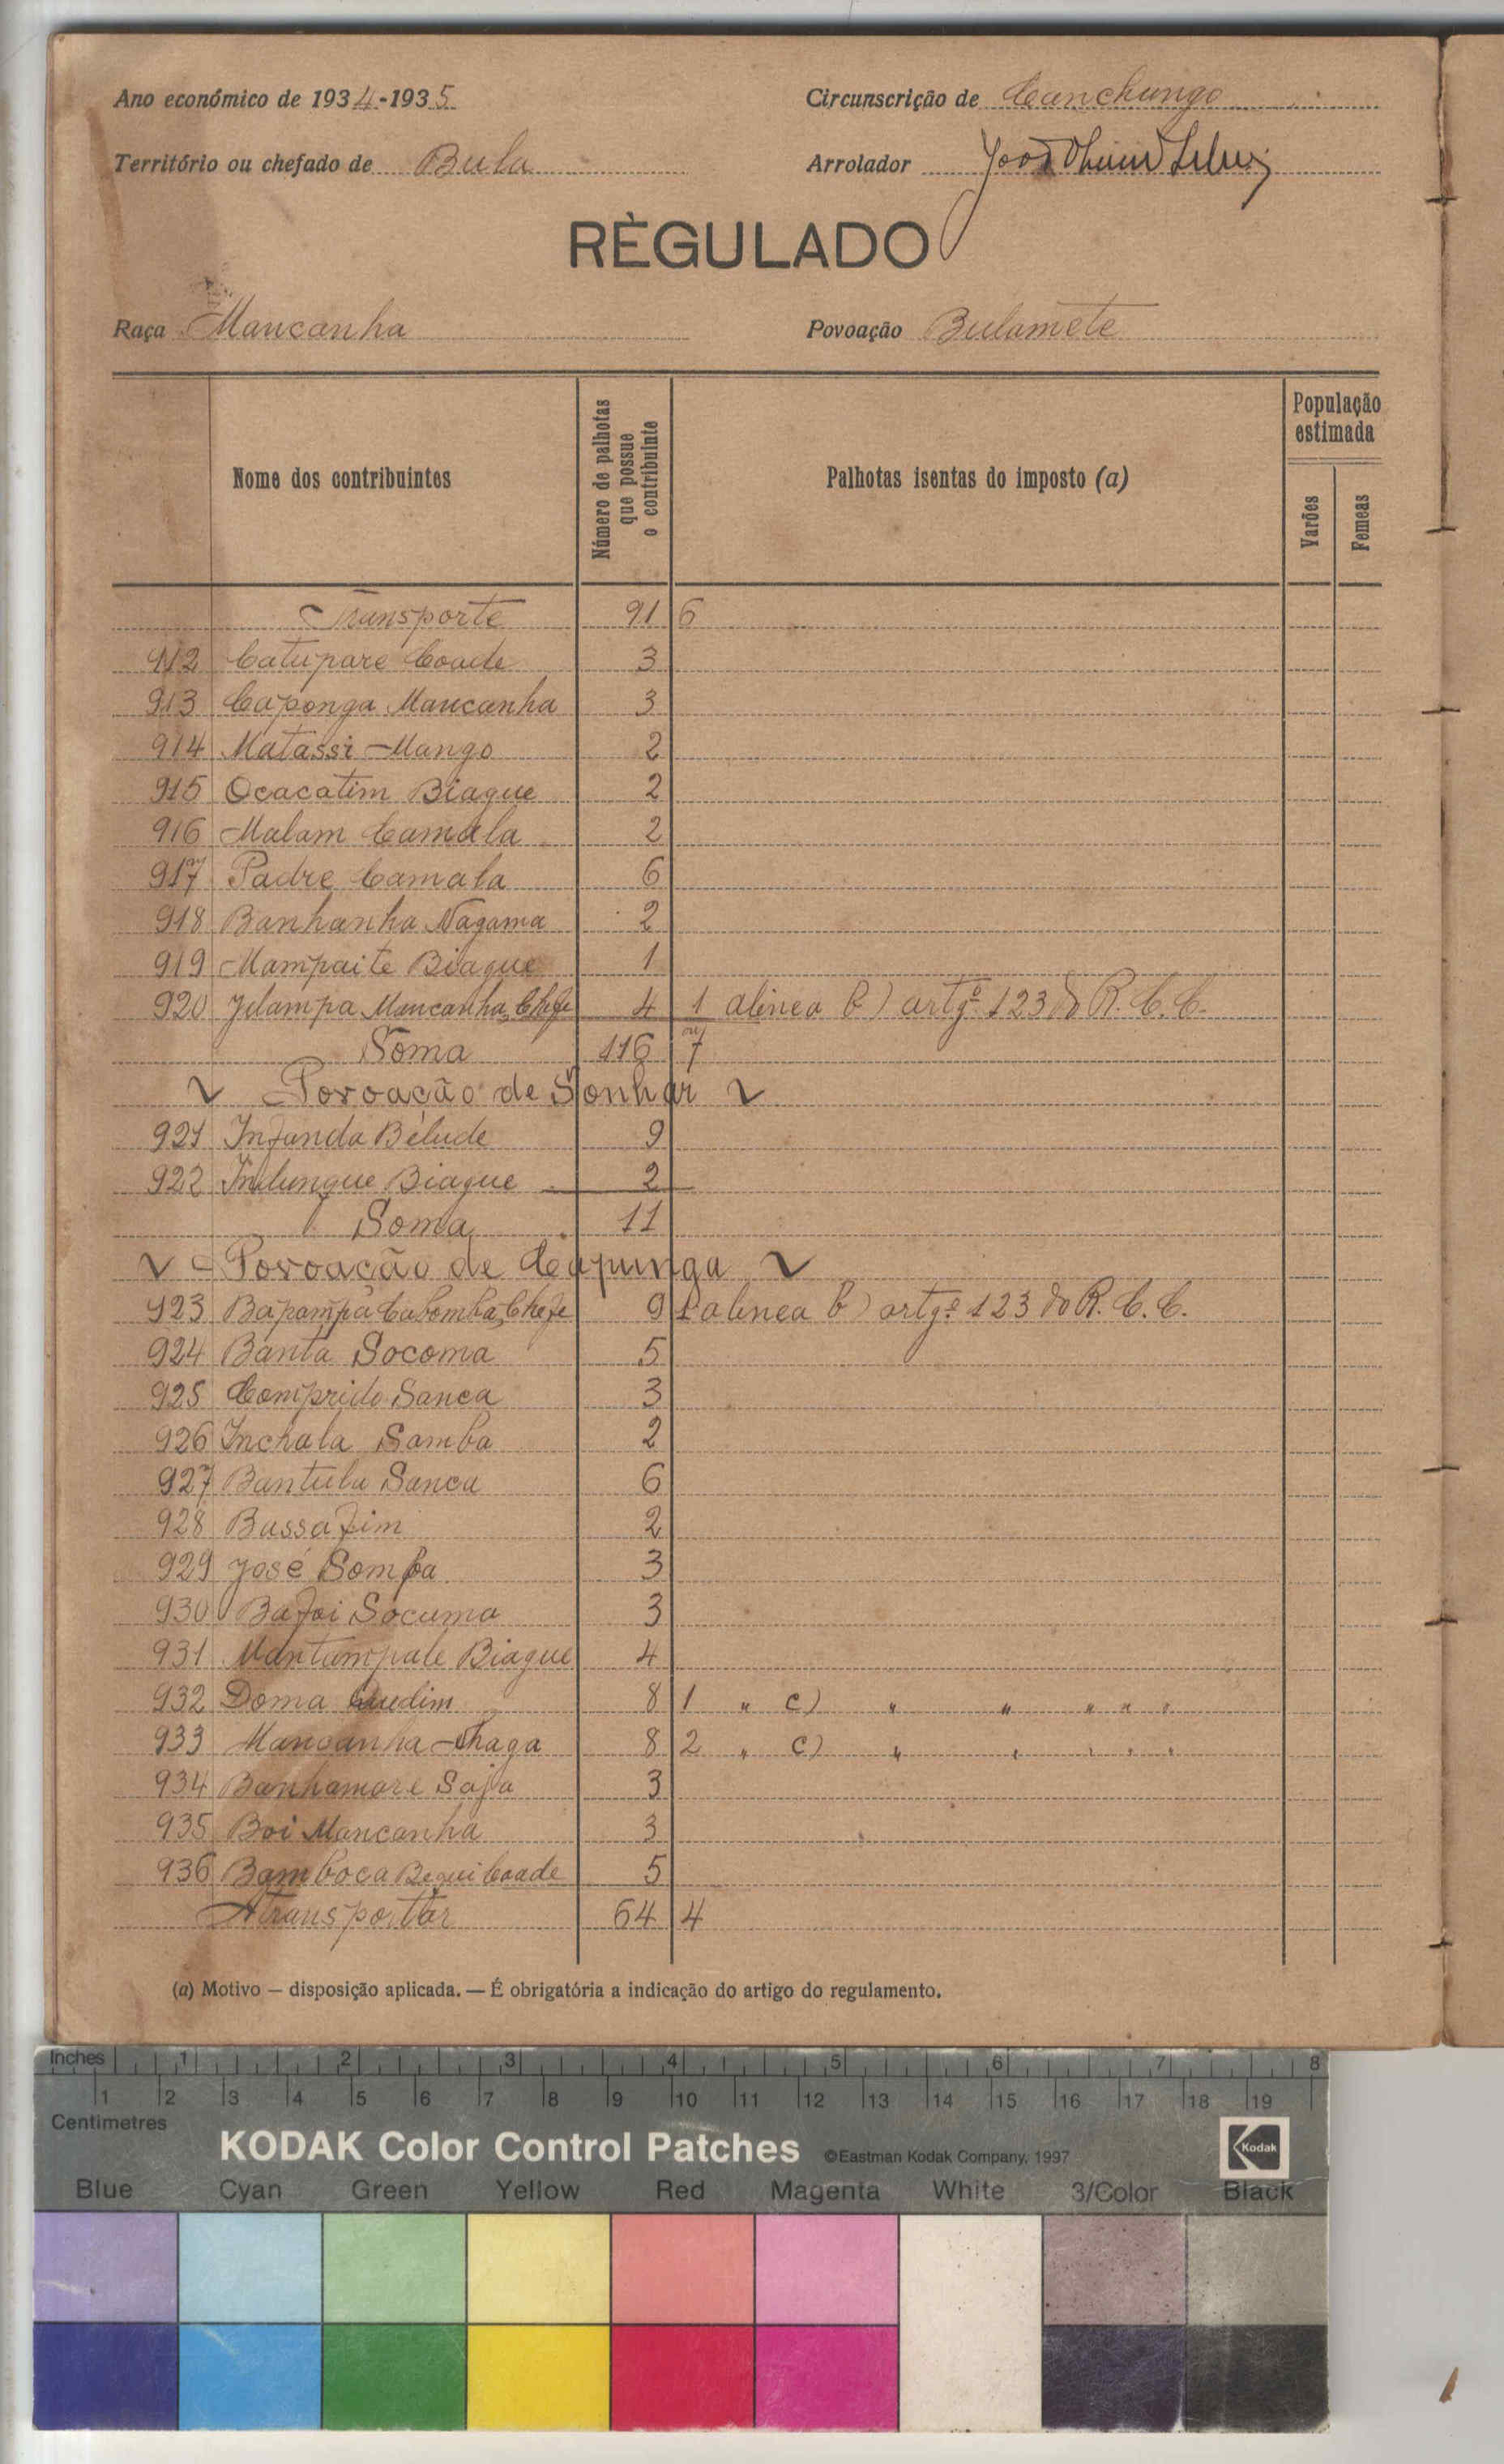 Ano económico de 1934-1935 Circunscrição de Canchungo
Território ou chefado de Bula Arrolador
RÈGULADO
Raça Mancanha Povoação Bulamete
Nome dos contribuintes Número de palhotas que possue o contribuinte Palhotas isentas do imposto (a) População estimada Varões Femeas
Transporte 91 6
912 Catupare Coade 3
913 Caponga Mancanha 3
914 Matassi Mango 2
915 Ocacatim Biague 2
916 Malam Camala 2
917 Padre Camala 6
918 Banhanha Nagama 2
919 Mampaite Biague 1
920 Jelampa Mancanha, Chefe 4 1 alinea b) artgº 123 do R. C. C.
Soma 116 7
Povoação de Sonhar
921 Infanda Bélude 9
922 Indungue Biague 2
Soma 11
Povoação de Capunga
923 Bapampa Cabomba, Chefe 9 1 alinea b) artgº 123 do R. C. C.
924 Banta Socoma 5
925 Comprido Sanca 3
926 Inchala Samba 2
927 Bantula Sanca 6
928 Bussa Fim 2
929 José Somba 3
930 Bafoi Socuma 3
931 Mantampale Biague 4
932 Doma Quedim 8 1 " c) " " " " "
933 Mancanha Thaga 8 2 " c) " " " " "
934 Banhamare Saja 3
935 Boi Mancanha 3
936 Bamboca Bequi Coade 5
A Transportar 64 4
(a) Motivo — disposição aplicada. — É obrigatória a indicação do artigo do regulamento.
Inches 1 2 3 4 5 6 7 8
1 2 3 4 5 6 7 8 9 10 11 12 13 14 15 16 17 18 19
Centimetres
KODAK Color Control Patches ©Eastman Kodak Company, 1997 Kodak
Blue Cyan Green Yellow Red Magenta White 3/Color Black